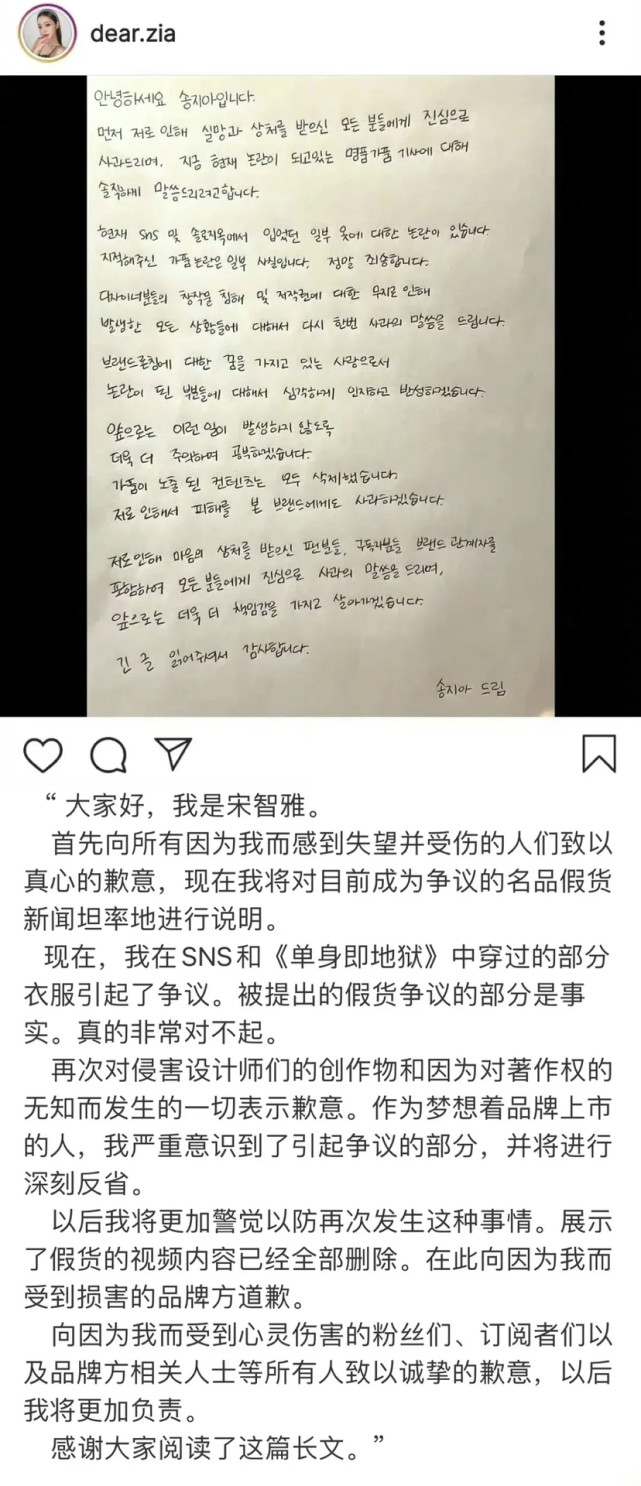 dear.zia
안녕하세요 송지아입니다.
먼저 저로 인해 실망과 상처를 받으신 모든 분들에게 진심으로
사과드리며, 지금 현재 논란이 되고있는 명품가품 기사에 대해
솔직하게 말씀드리려고합니다.
현재 sns 및 솔로지옥에서 입었던 일부 옷에 대한 논란이 있습니다.
지적해주신 가품논란은 일부 사실입니다. 정말 죄송합니다.
디자이너분들의 창작물 침해 및 저작권에 대한 무지로 인해
발생한 모든 상황들에 대해서 다시 한번 사과의 말씀을 드립니다.
브랜드론칭에 대한 꿈을 가지고 있는 사람으로서
논란이 된 부분들에 대해서 심각하게 인지하고 반성하겠습니다.
앞으로는 이런 일이 발생하지 않도록
더욱 더 주의하며 공부하겠습니다.
가품이 노출 된 컨텐츠는 모두 삭제했습니다.
저로 인해서 피해를 본 브랜드에게도 사과하겠습니다.
저로인해 마음의 상처를 받으신 팬분들, 구독자분들 브랜드 관계자를
포함하여 모든 분들에게 진심으로 사과의 말씀을 드리며,
앞으로는 더욱 더 책임감을 가지고 살아가겠습니다.
긴 글 읽어주셔서 감사합니다.
송지아 드림
“大家好，我是宋智雅。
首先向所有因为我而感到失望并受伤的人们致以
真心的歉意，现在我将对目前成为争议的名品假货
新闻坦率地进行说明。
现在，我在SNS和《单身即地狱》中穿过的部分
衣服引起了争议。被提出的假货争议的部分是事
实。真的非常对不起。
再次对侵害设计师们的创作物和因为对著作权的
无知而发生的一切表示歉意。作为梦想着品牌上市
的人，我严重意识到了引起争议的部分，并将进行
深刻反省。
以后我将更加警觉以防再次发生这种事情。展示
了假货的视频内容已经全部删除。在此向因为我而
受到损害的品牌方道歉。
向因为我而受到心灵伤害的粉丝们、订阅者们以
及品牌方相关人士等所有人致以诚挚的歉意，以后
我将更加负责。
感谢大家阅读了这篇长文。”